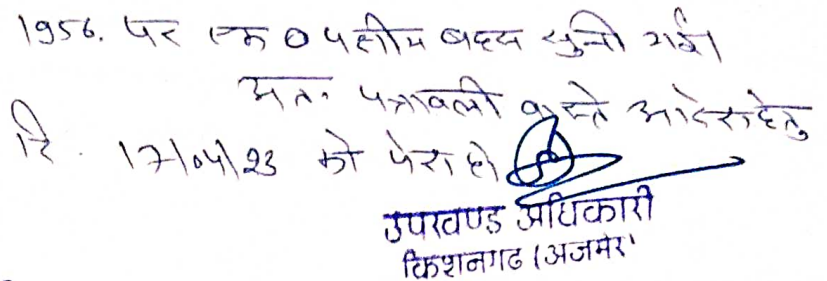 1956. पर एक0 पक्षीय बहस सुनी गई।
अतः पत्रावली वास्ते आदेश हेतु
दि. 17/04/23 को पेश हो
उपखण्ड अधिकारी
किशनगढ (अजमेर)